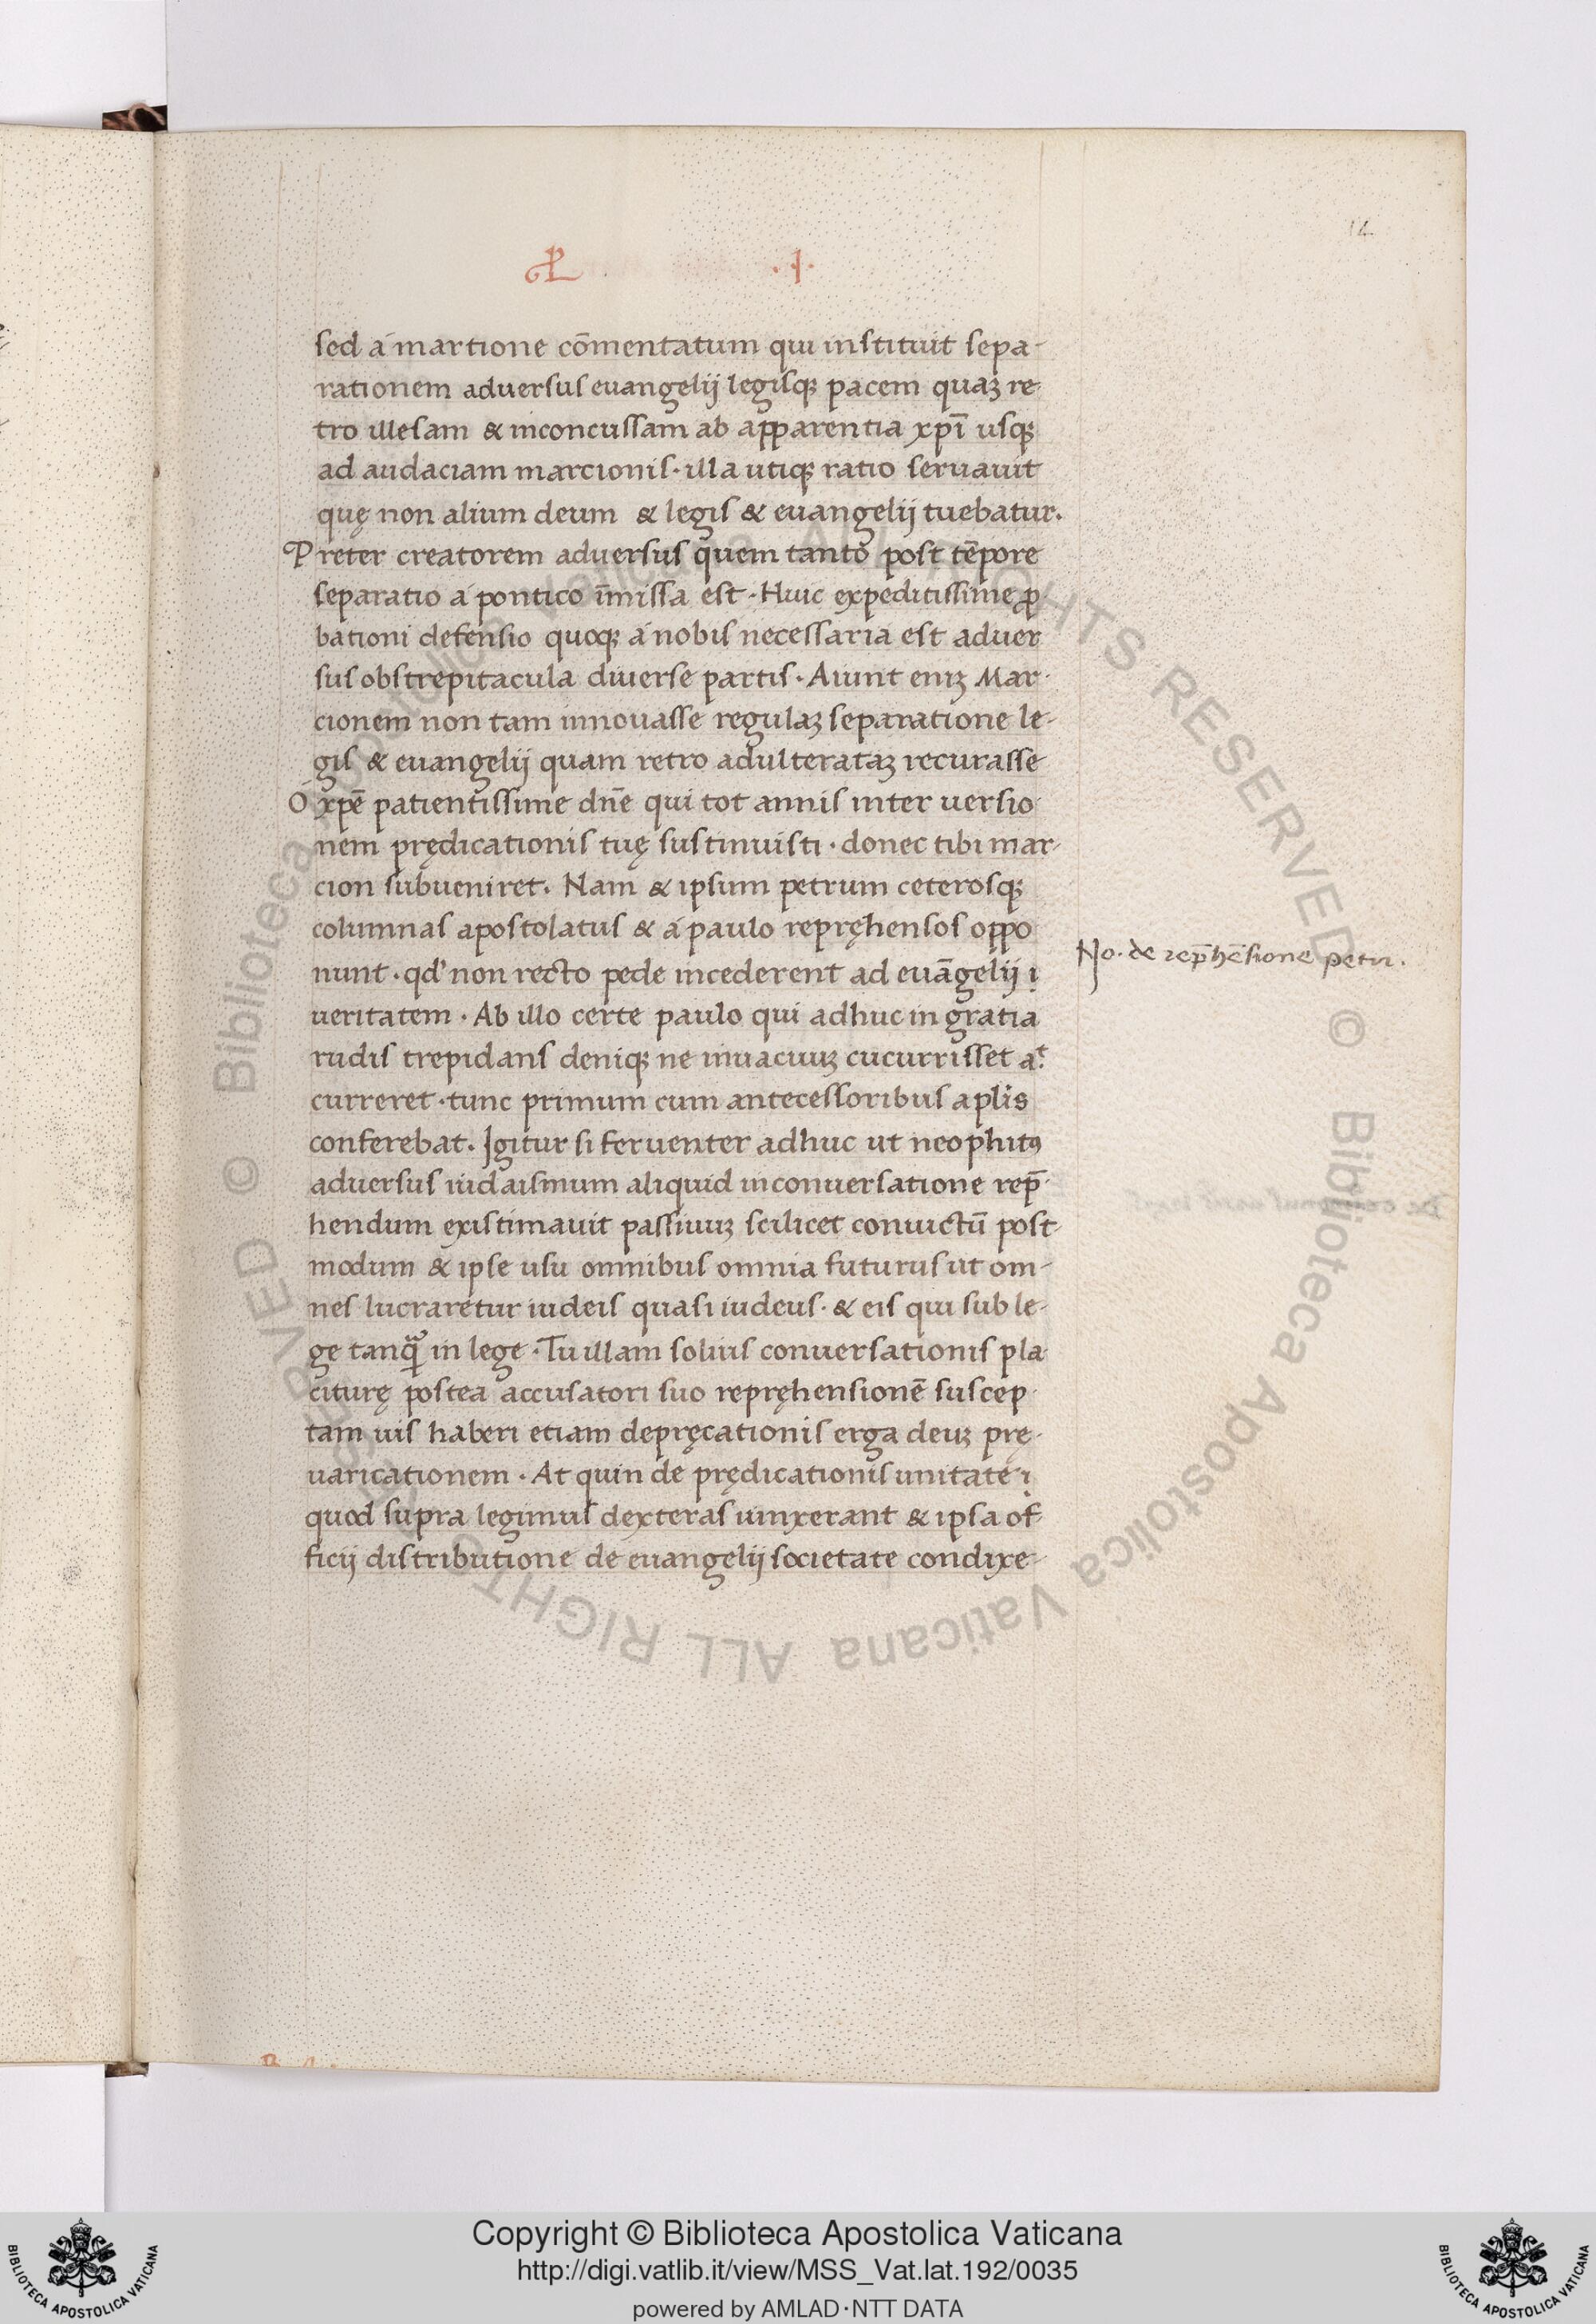 14
PL ·I·
sed á martione cōmentatum qui instituit sepa-
rationem aduersus euangelij legisqꝫ pacem quaꝫ re-
tro illesam & inconcussam ab apparentia xpī usqꝫ
ad audaciam marcionis· illa utiqꝫ ratio seruauit
quę non alium deum & legis & euangelij tuebatur.
Preter creatorem aduersus quem tanto post tēpore
separatio á pontico īmissa est· Huic expeditissime ꝓ-
bationi defensio quoqꝫ á nobis necessaria est aduer
sus obstrepitacula diuerse partis· Aiunt enīꝫ Mar-
cionem non tam innouasse regulaꝫ separatione le-
gis & euangelij quam retro adulterataꝫ recurasse
O xpē patientissime dn̄e qui tot annis inter uersio-
nem prędicationis tuę sustinuisti· donec tibi mar-
cion subueniret. Nam & ipsum petrum ceterosqꝫ
columnas apostolatus & á paulo repręhensos oppo
nunt· qd' non recto pede incederent ad euāgelij i
ueritatem· Ab illo certe paulo qui adhuc in gratia
rudis trepidans deniqꝫ ne inuacuuꝫ cucurrisset aᵗ
curreret· tunc primum cum antecessoribus aplis
conferebat. Igitur si feruenter adhuc ut neophitꝰ
aduersus iudaismum aliquid inconuersatione rep̄-
hendum existimauit passiuuꝫ scilicet conuictū post-
modum & ipse usu omnibus omnia futurus ut om-
nes lucraretur iudeis quasi iudeus· & eis qui sub le-
ge tanꝗ̃ in lege· Tu illam solius conuersationis pla-
citurę postea accusatori suo repręhensionē suscep-
tam uis haberi etiam depręcationis erga deuꝫ prę-
uaricationem· At quin de prędicationis unitate i
quod supra legimus dexteras iunxerant & ipsa of-
ficij distributione de euangelij societate condixe-
No. de rep̄hēsione petri.
© Biblioteca Apostolica Vaticana ALL RIGHTS RESERVED © Biblioteca Apostolica Vaticana ALL RIGHTS RESERVED
Copyright © Biblioteca Apostolica Vaticana
http://digi.vatlib.it/view/MSS_Vat.lat.192/0035
powered by AMLAD·NTT DATA
BIBLIOTECA APOSTOLICA VATICANA
BIBLIOTECA APOSTOLICA VATICANA